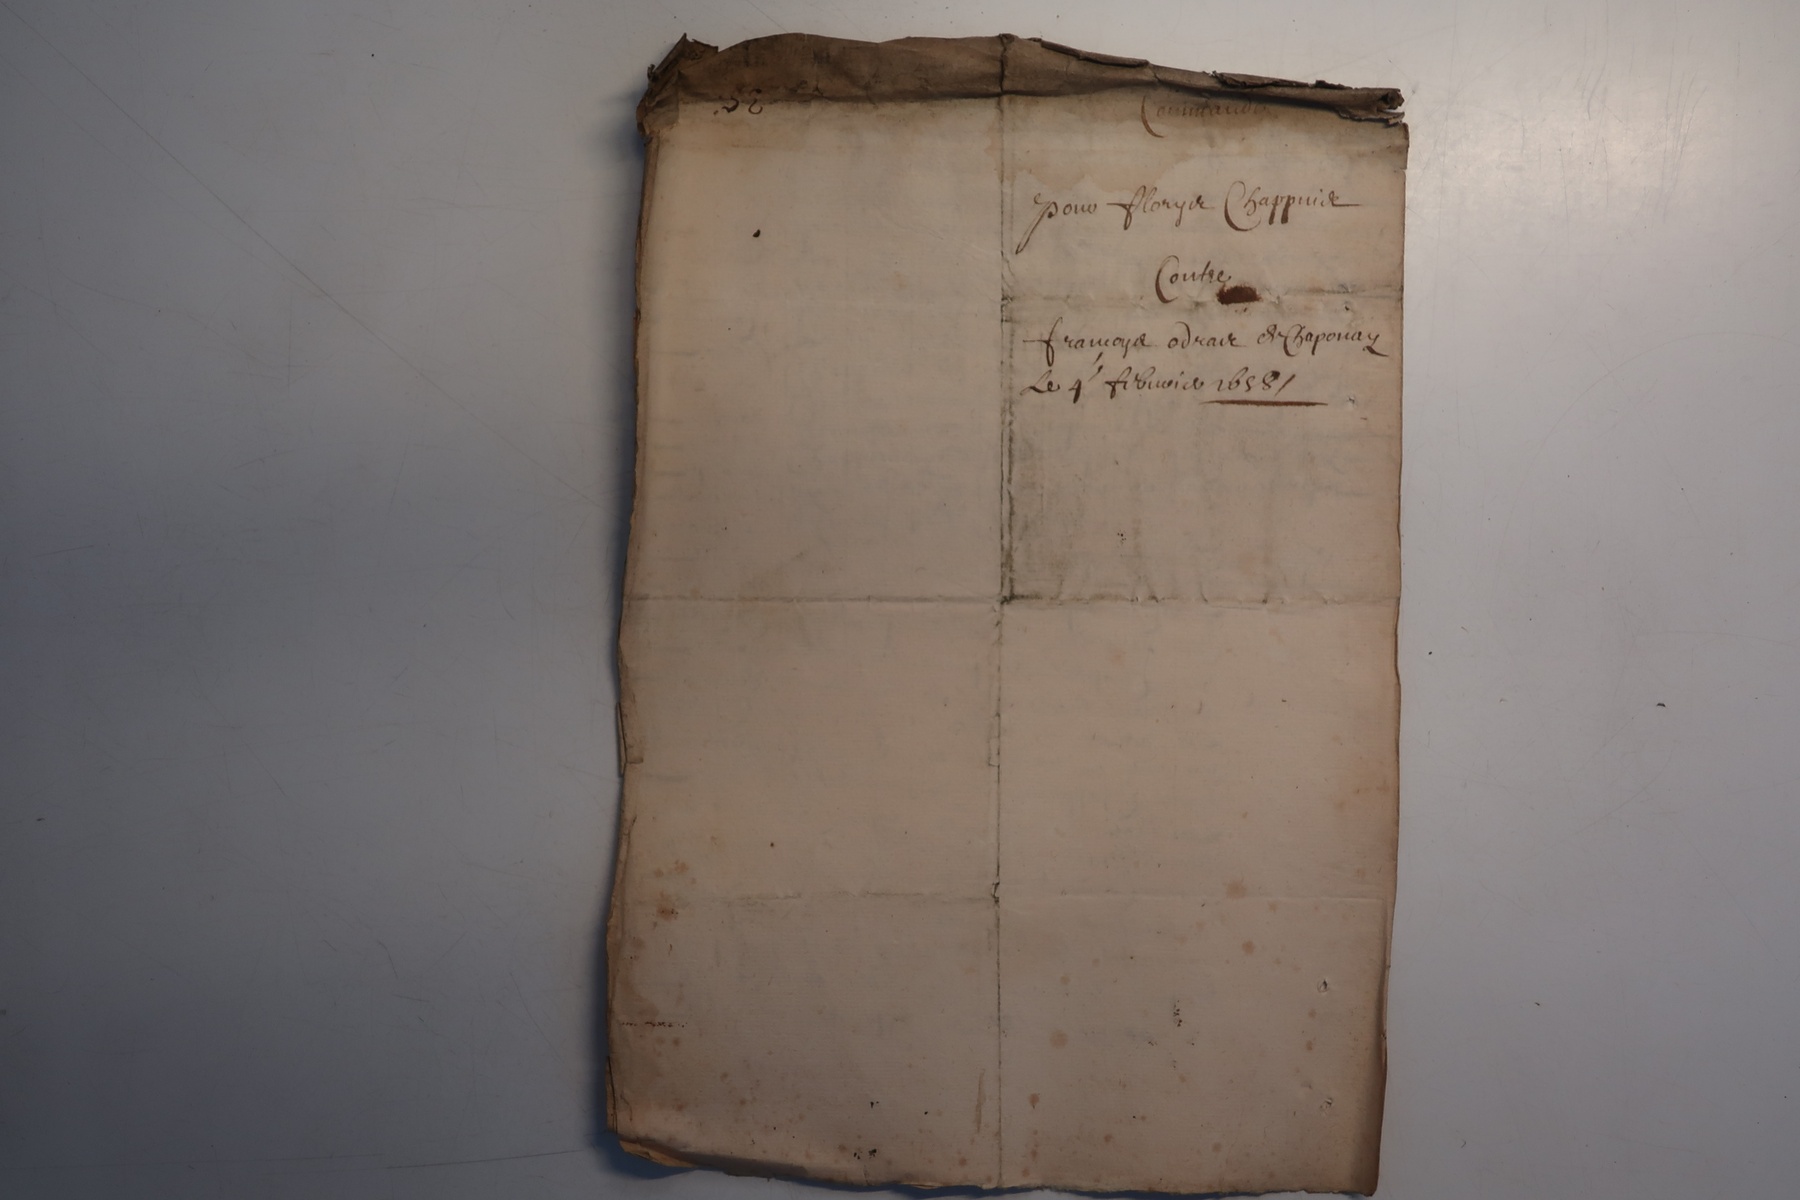 Commande
pour florys Chappuis
Contre
francoys odrac de Chaponay
Le 4e febvrier 1658